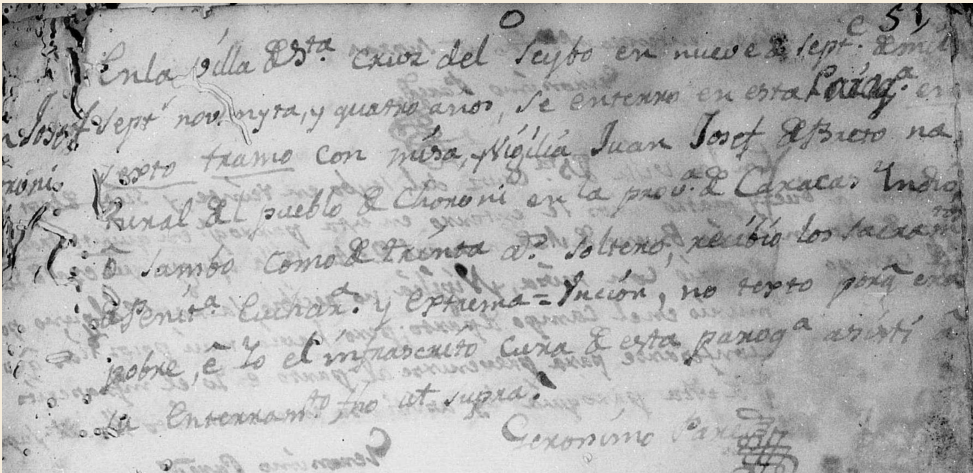 51
En la villa de Sta. cruz del Seybo en nueve de septe. de mil
Sept. nov. nynta, y quatro anos, se enterro en esta Paroqa. en
Josef
sexto tramo con misa, y Vigilia Juan Josef de Brito na
roni
tural del pueblo de Choroni en la prova. de Caracas Yndio
o sambo como de trinta as. soltero, recibió los sacramtos
de Penita. Euchara. y extrema=Vnción, no testo porq̃ era
pobre, e Yo el infrascrito cura de esta paroqa asistí a
su enterramto, fho ut supra.
Geronimo